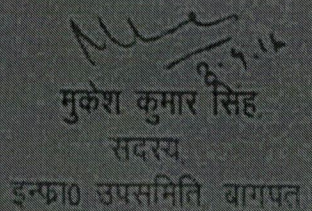 मुकेश कुमार सिंह,
सदस्य,
इन्फ्रा0 उपसमिति, बागपत